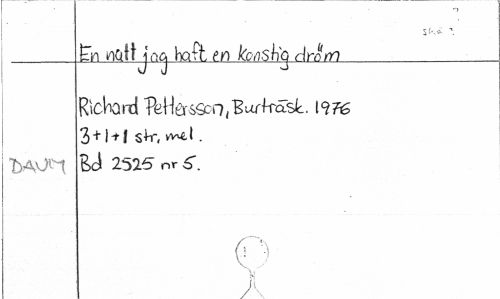 ?
ska ?
En natt jag haft en konstig dröm
Richard Pettersson, Burträsk. 1976
3+1+1 str, mel.
DAUM Bd 2525 nr 5.